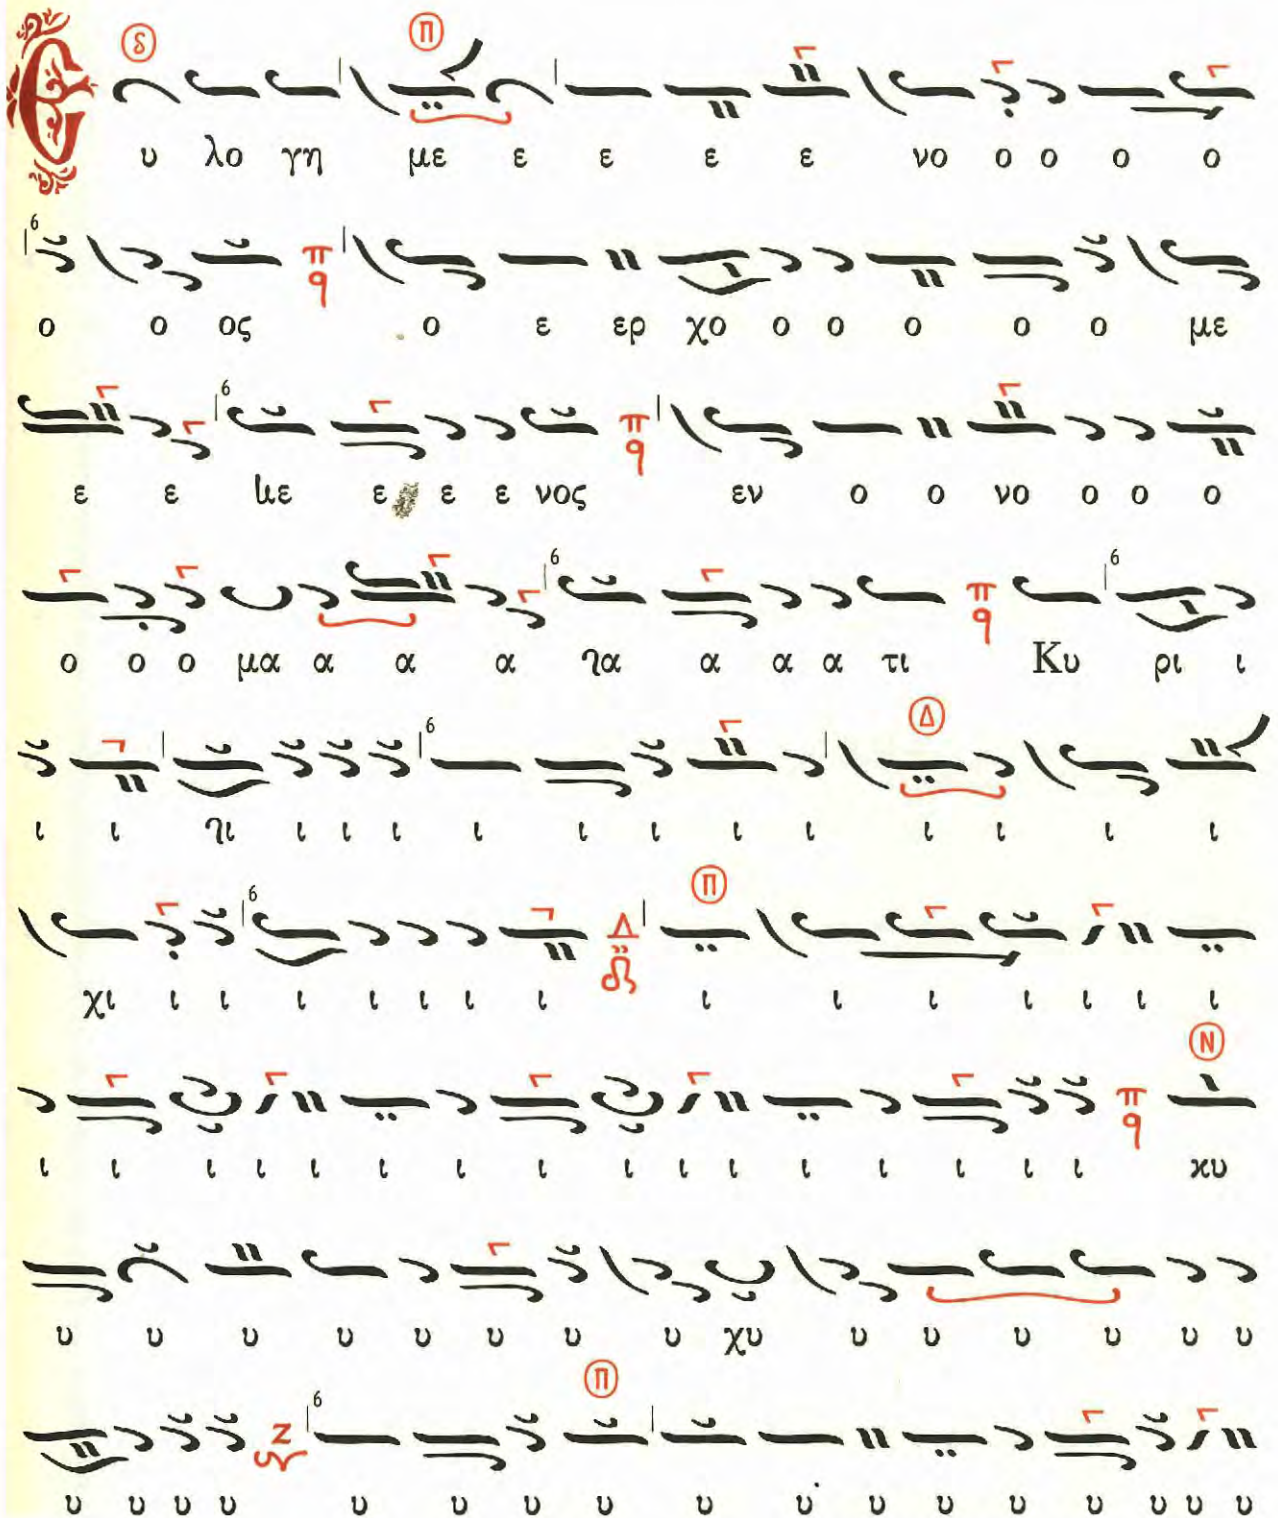 Ευ λο γη με ε ε ε ε νο ο ο ο ο
ο ο ος ο ε ερ χο ο ο ο ο ο με
ε ε με ε ε ε νος εν ο ο νο ο ο ο
ο ο ο μα α α α α α α τι Κυ ρι ι
ι ι ι ι ι ι ι ι ι ι ι ι ι ι
χι ι ι ι ι ι ι ι ι ι ι ι ι ι ι
ι ι ι ι ι ι ι ι ι ι ι ι ι ι ι ι κυ
υ υ υ υ υ υ υ υ χυ υ υ υ υ υ υ
υ υ υ υ υ υ υ υ υ υ υ υ υ υ υ υ υ